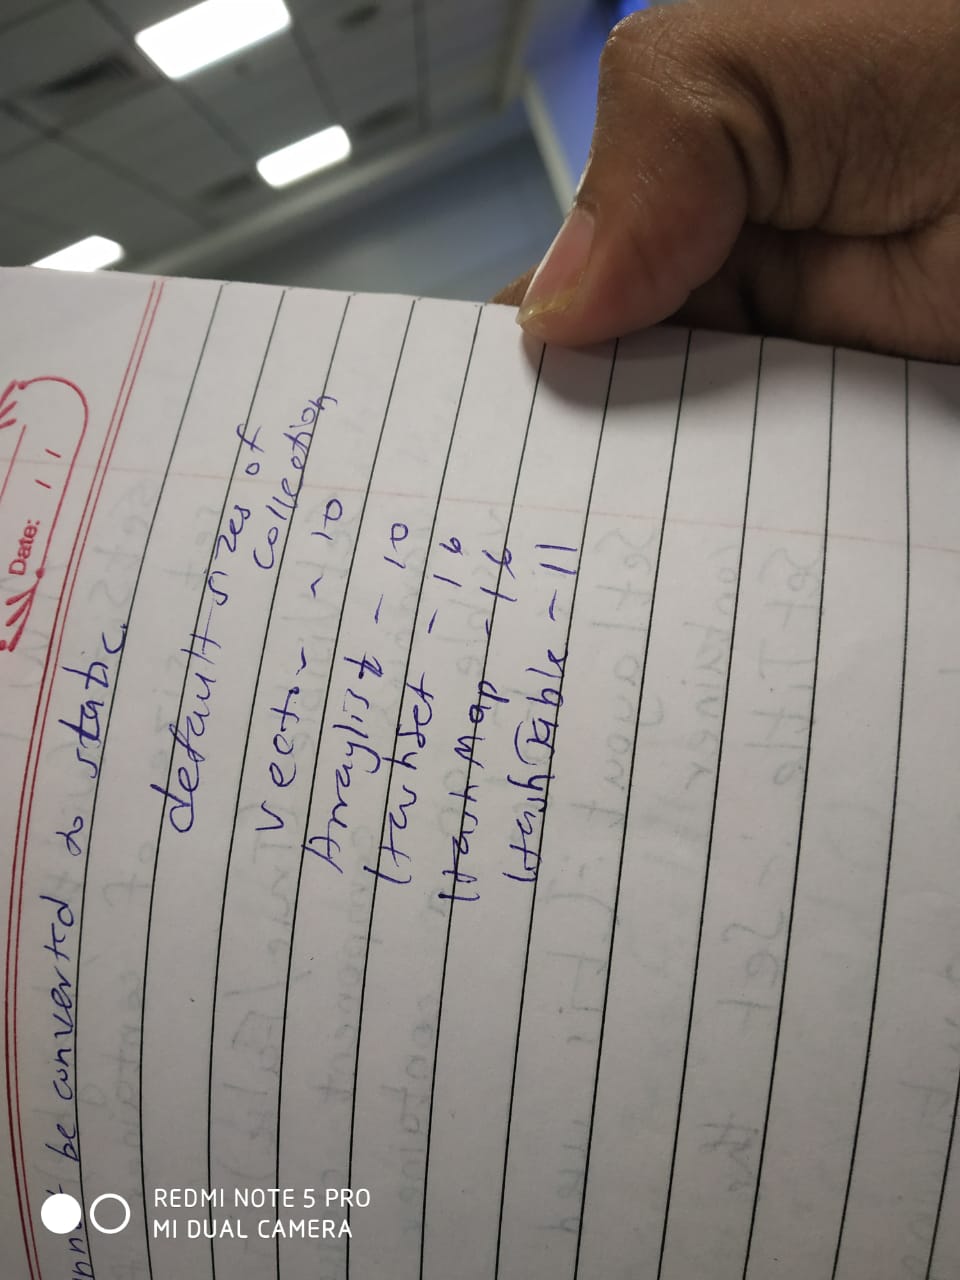 Date: / /
be converted to static.
default sizes of
collection
Vector - 10
Arraylist - 10
HashSet - 16
HashMap - 16
HashTable - 11
REDMI NOTE 5 PRO
MI DUAL CAMERA